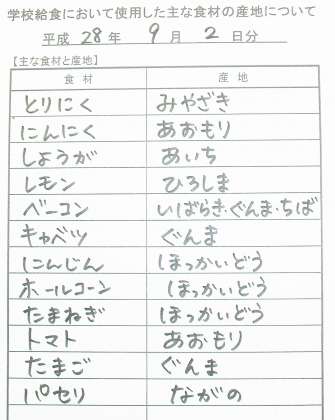 学校給食において使用した主な食材の産地について
平成 28 年 9 月 2 日分
【主な食材と産地】
食 材 産 地
とりにく みやざき
にんにく あおもり
しょうが あいち
レモン ひろしま
ベーコン いばらき・ぐんま・ちば
キャベツ ぐんま
にんじん ほっかいどう
ホールコーン ほっかいどう
たまねぎ ほっかいどう
トマト あおもり
たまご ぐんま
パセリ ながの